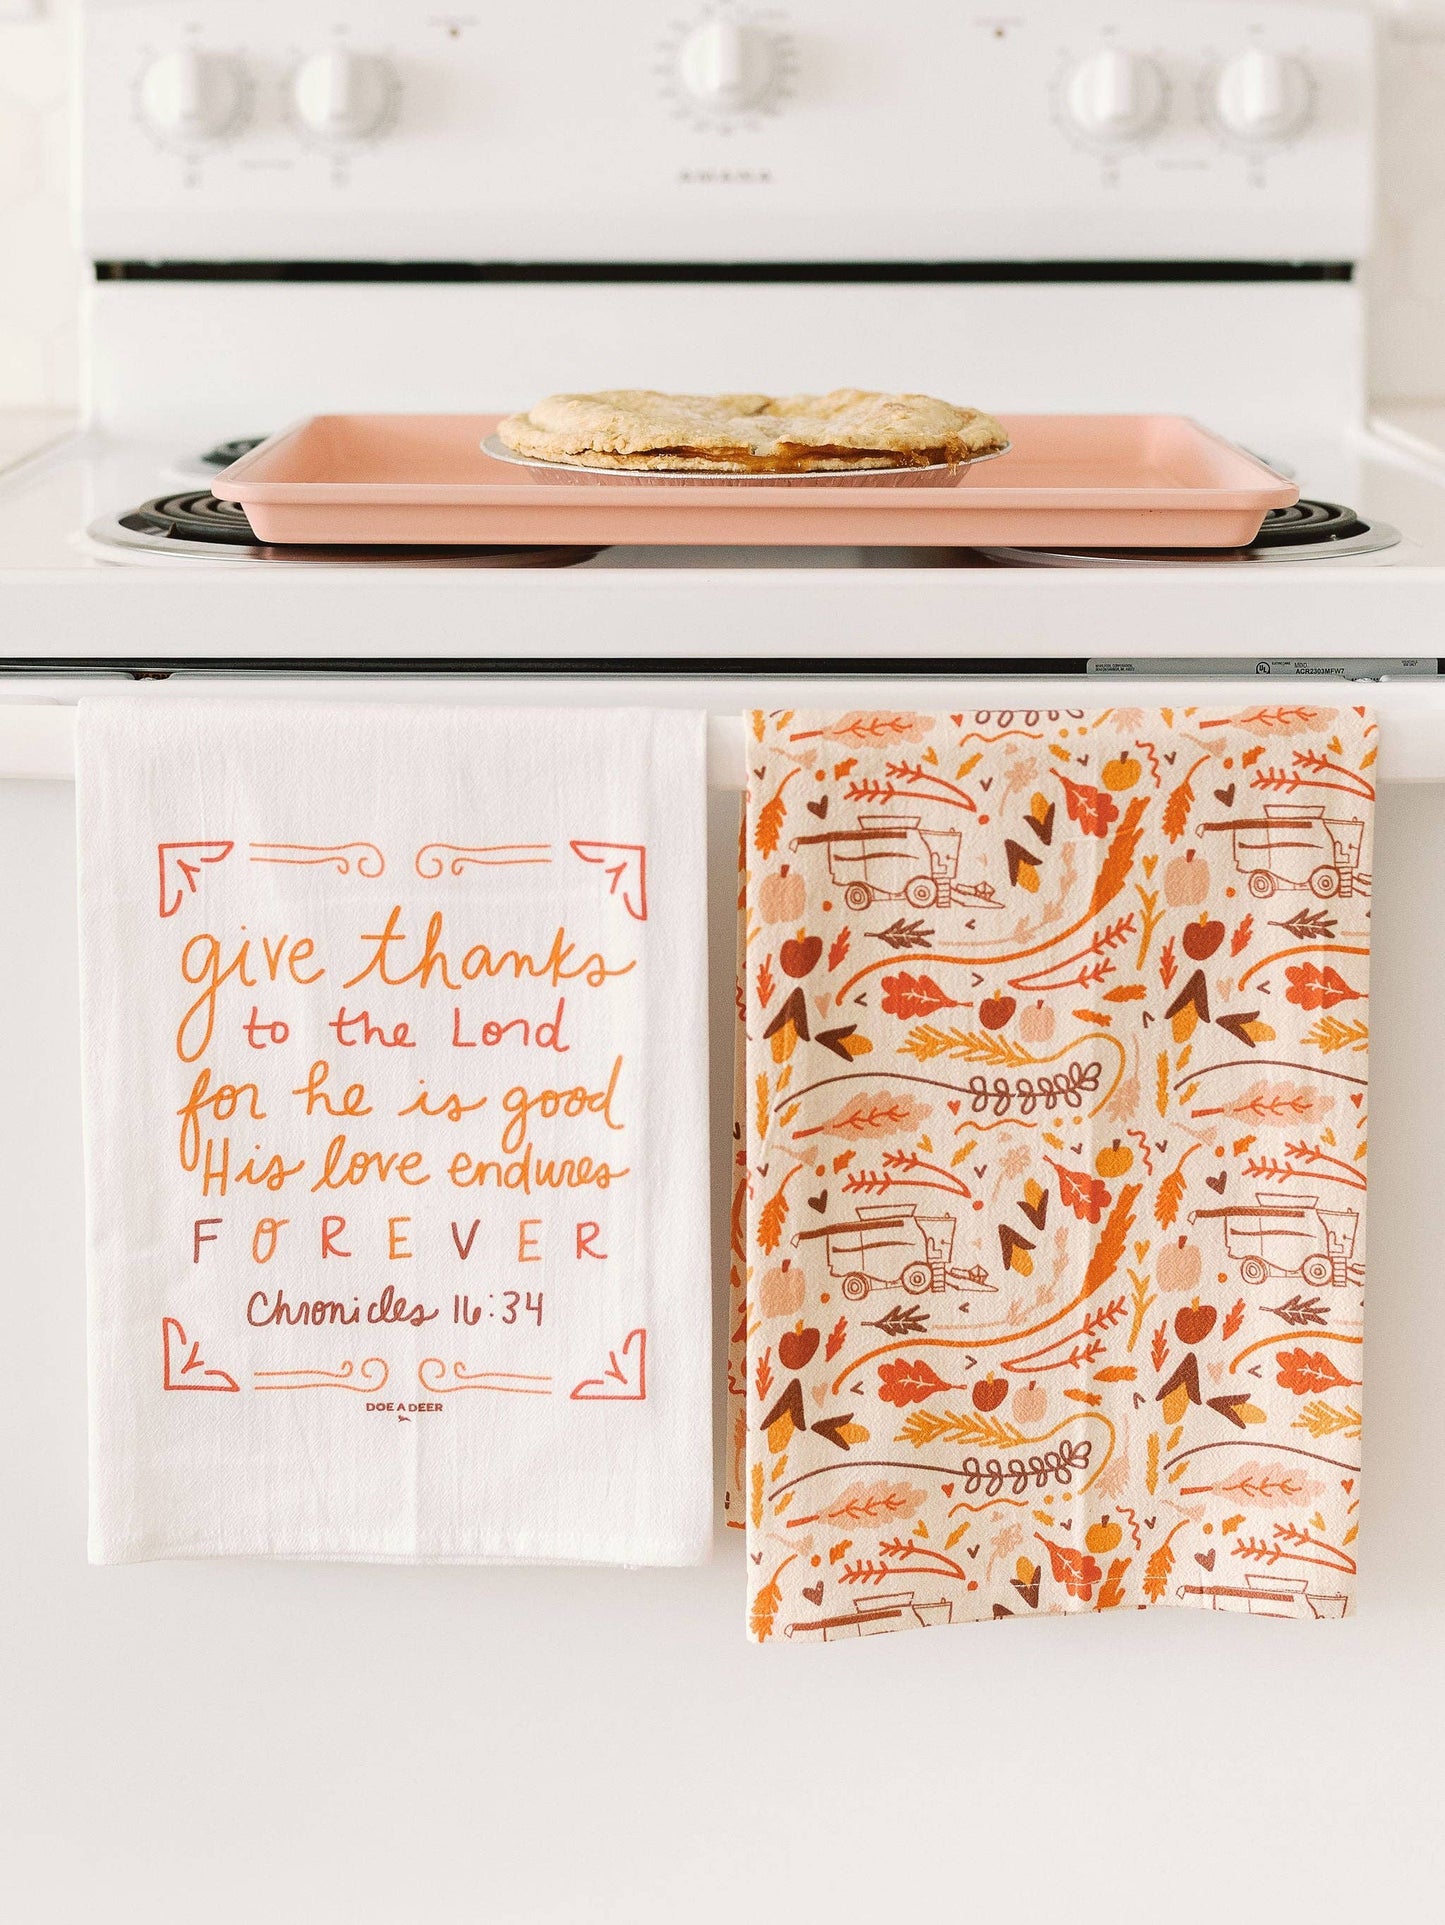 AMANA
ACR2303MFW7
give thanks
to the Lord
for he is good
His love endures
FOREVER
Chronicles 16:34
DOE A DEER